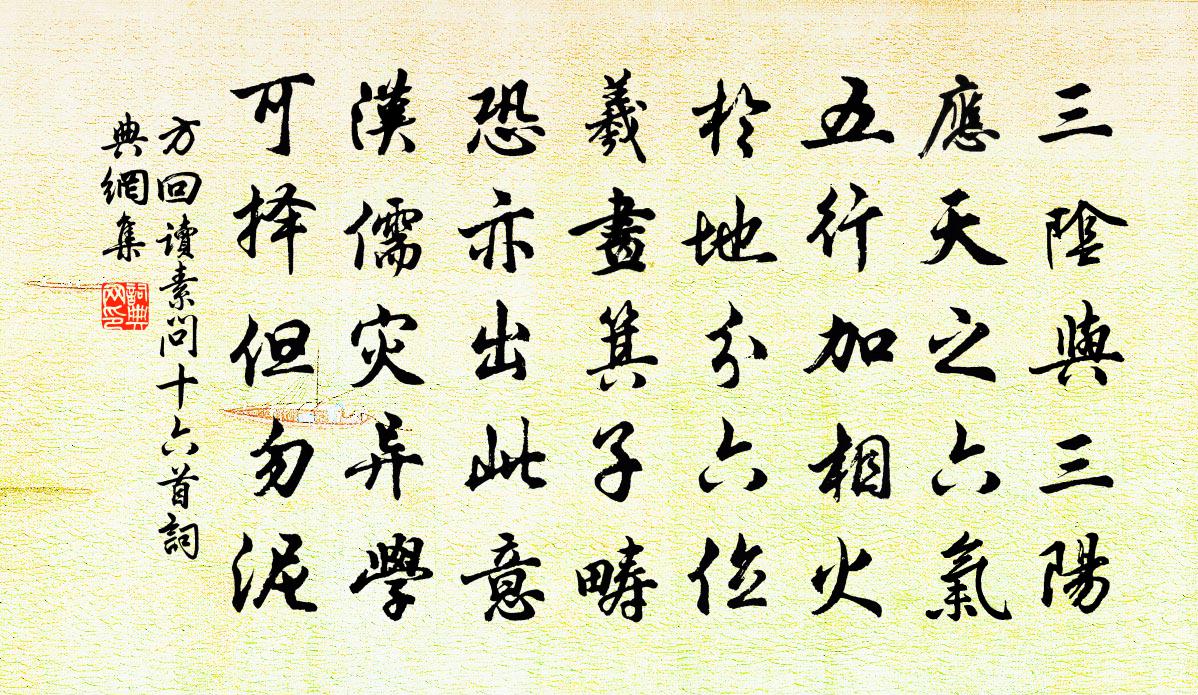 三陰與三陽
應天之六氣
五行加相火
於地分六位
羲畫箕子疇
恐亦出此意
漢儒灾异學
可择但勿泥
方回讀素問十六首詞
典網集
詞典网印